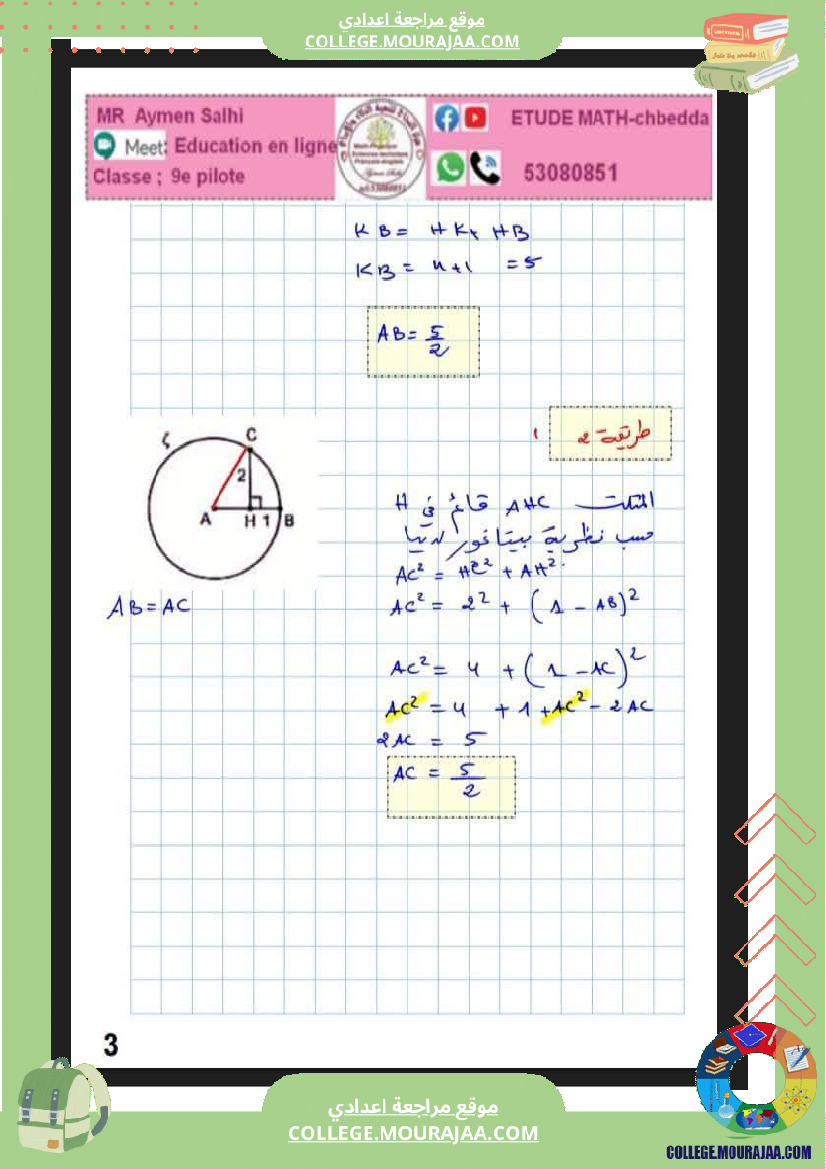 موقع مراجعة اعدادي
COLLEGE.MOURAJAA.COM
MR Aymen Salhi
Meet: Education en ligne
Classe ; 9e pilote
ETUDE MATH-chbedda
53080851
KB = HK+ HB
KB = 4+1 =5
AB = 5/2
طريقة 2
C
2
A H 1 B
المثلث AHC قائم في H
حسب نظرية بيتاغور لدينا
AC² = HC² + AH²
AB = AC
AC² = 2² + (1 - AB)²
AC² = 4 + (1 - AC)²
AC² = 4 + 1 + AC² - 2AC
2AC = 5
AC = 5/2
3
موقع مراجعة اعدادي
COLLEGE.MOURAJAA.COM
COLLEGE.MOURAJAA.COM